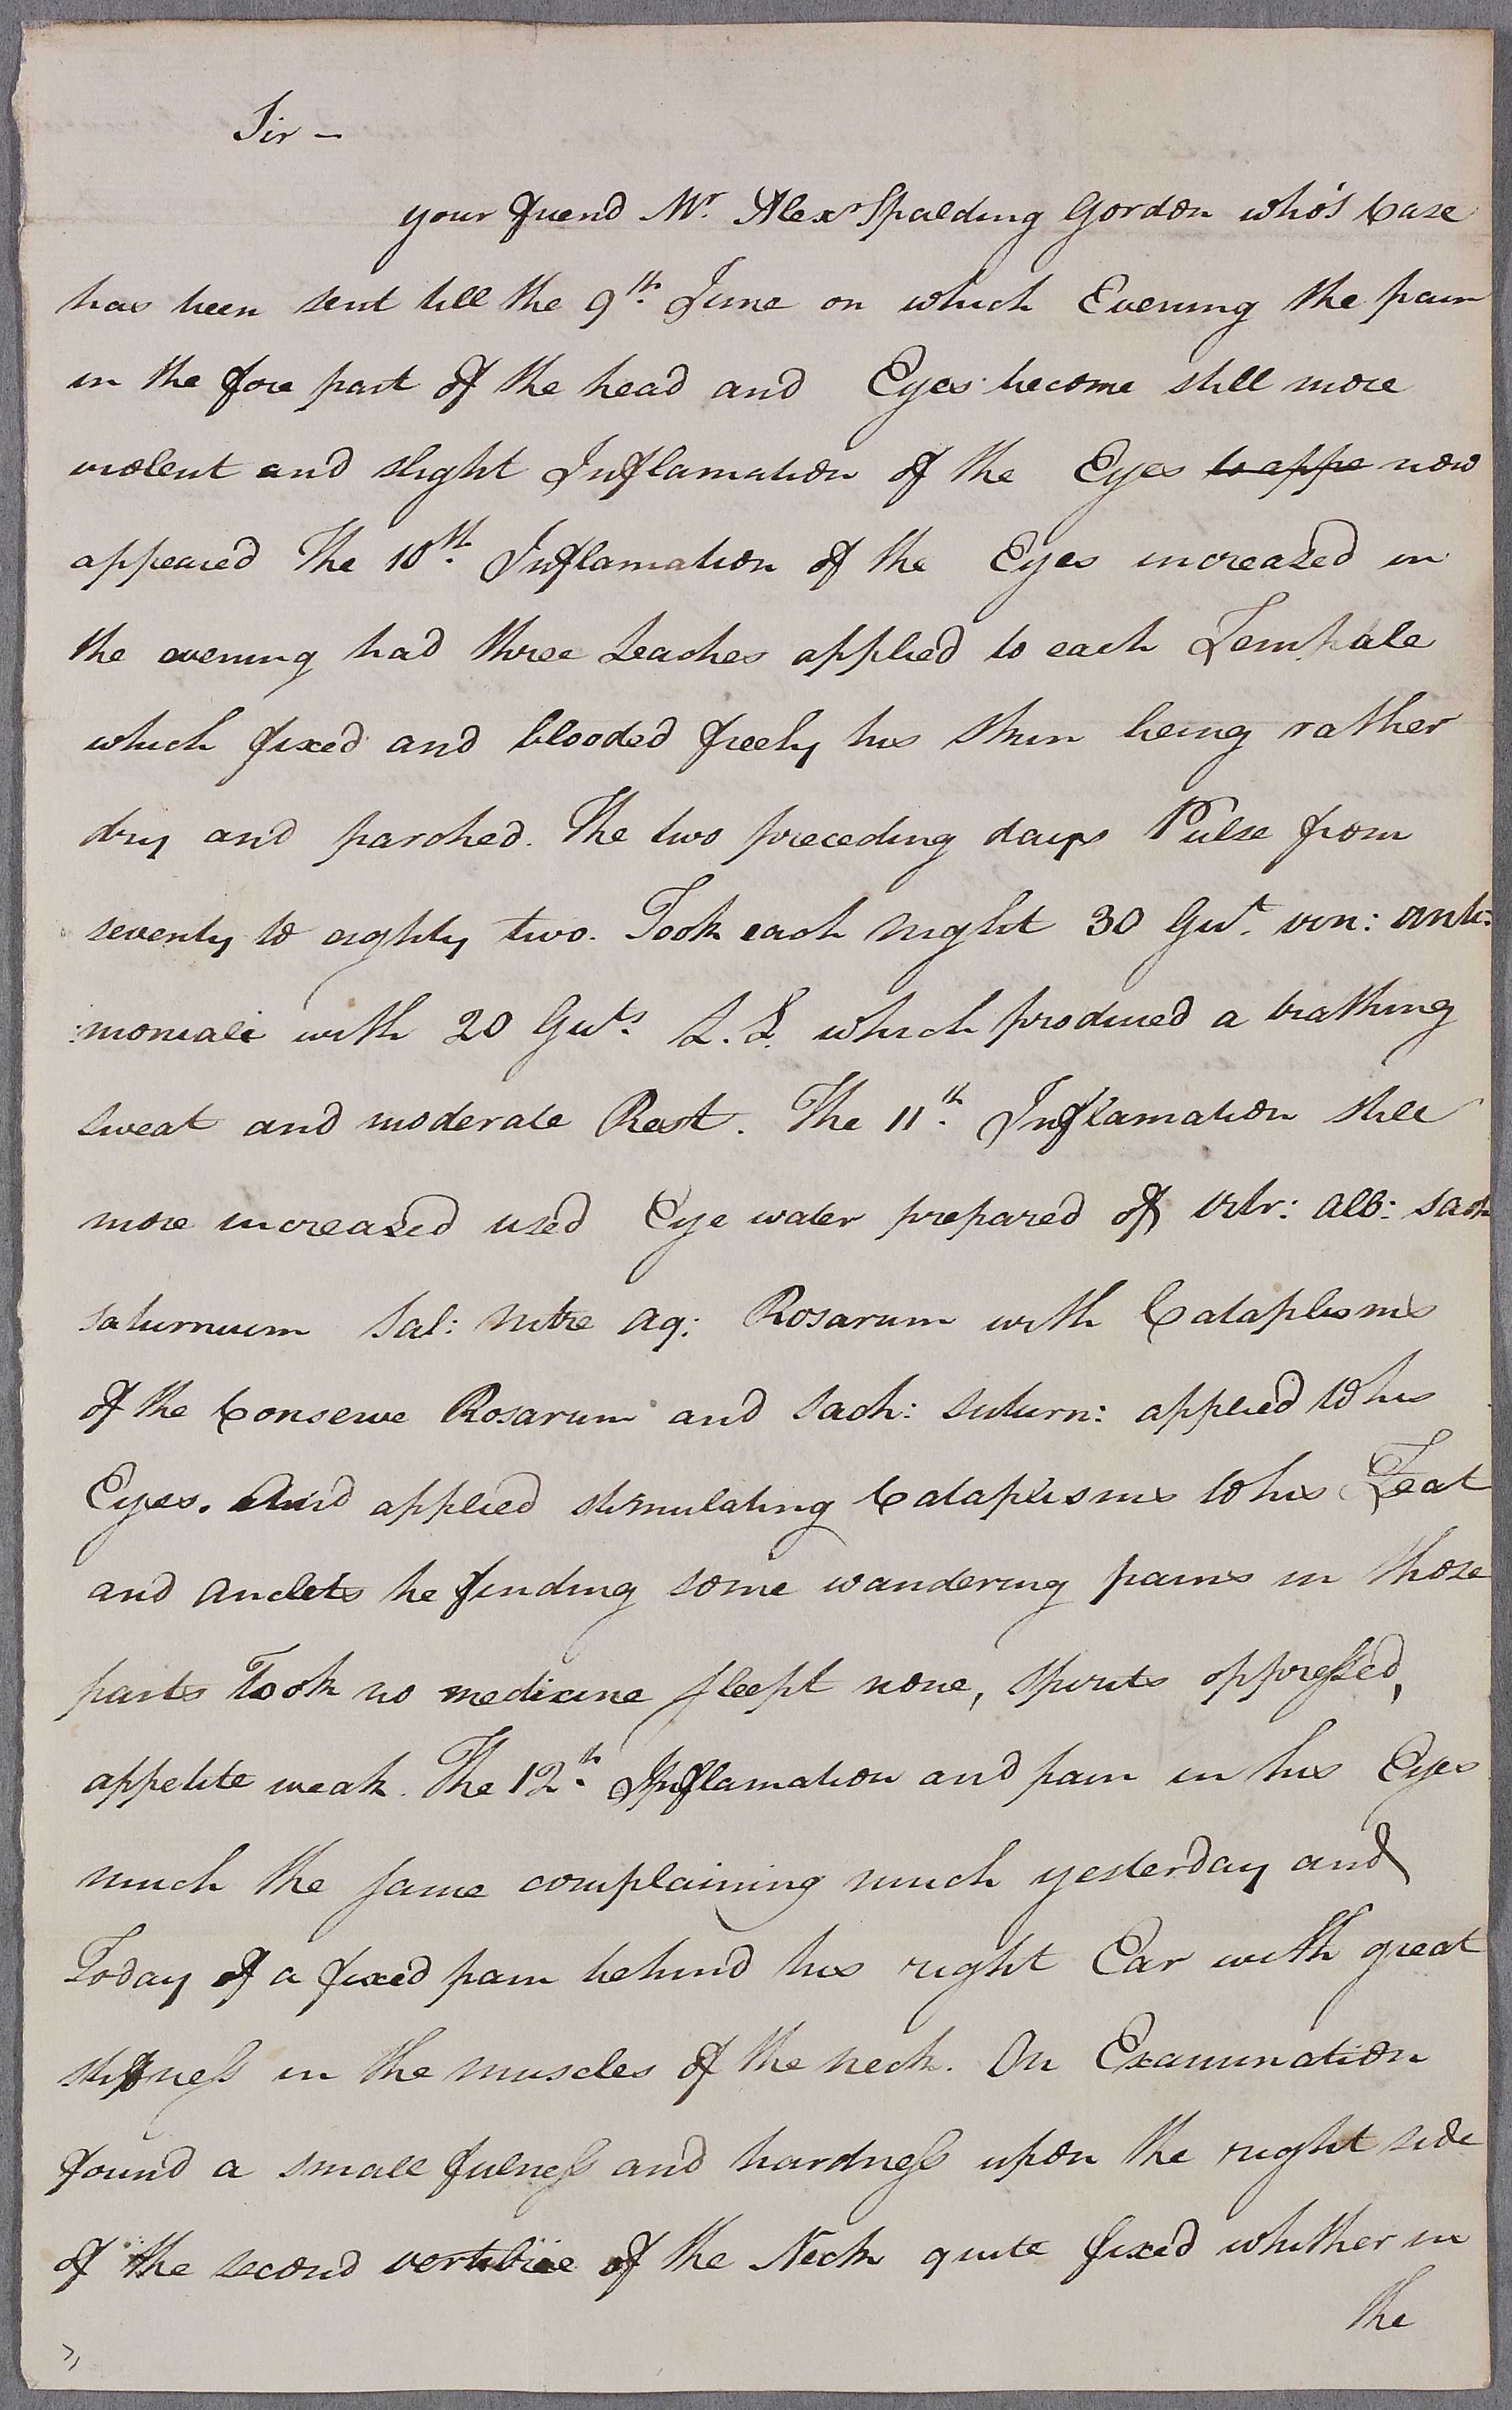 Sir —
your friend Mr. Alexr Spalding Gordon who's Case
has been sent till the 9th. June on which Evening the pain
in the fore part of the head and Eyes become still more
violent and slight Inflamation of the Eyes to appe now
appeared The 10th. Inflamation of the Eyes increased in
the evening had three Leaches applied to each Tempale
which fixed and blooded freely his skin being rather
dry and parched. The two preceding days Pulse from
seventy to eighty two. Took each night 30 Gut. vin: anti:
:moniali with 20 Guts. L.L. which produced a breathing
sweat and moderate Rest. The 11th. Inflamation still
more increased used Eye water prepared of vitr: alb: sach
saturnum Sal: nitre aq: Rosarum with Cataplisms
of the Conserve Rosarum and sach: saturn: applied to his
Eyes. And applied stimulating Cataplisms to his Feat
and anclets he finding some wandering pains in those
parts Took no medicine sleept none, spirits oppressed,
appetite weak. The 12th. Inflamation and pain in his Eyes
much the same complaining much yesterday and
Today of a fixed pain behind his right Ear with great
stifness in the muscles of the neck. On Examination
found a small fulness and hardness upon the right side
of the second vertibræ of the Neck quite fixed whither in
the